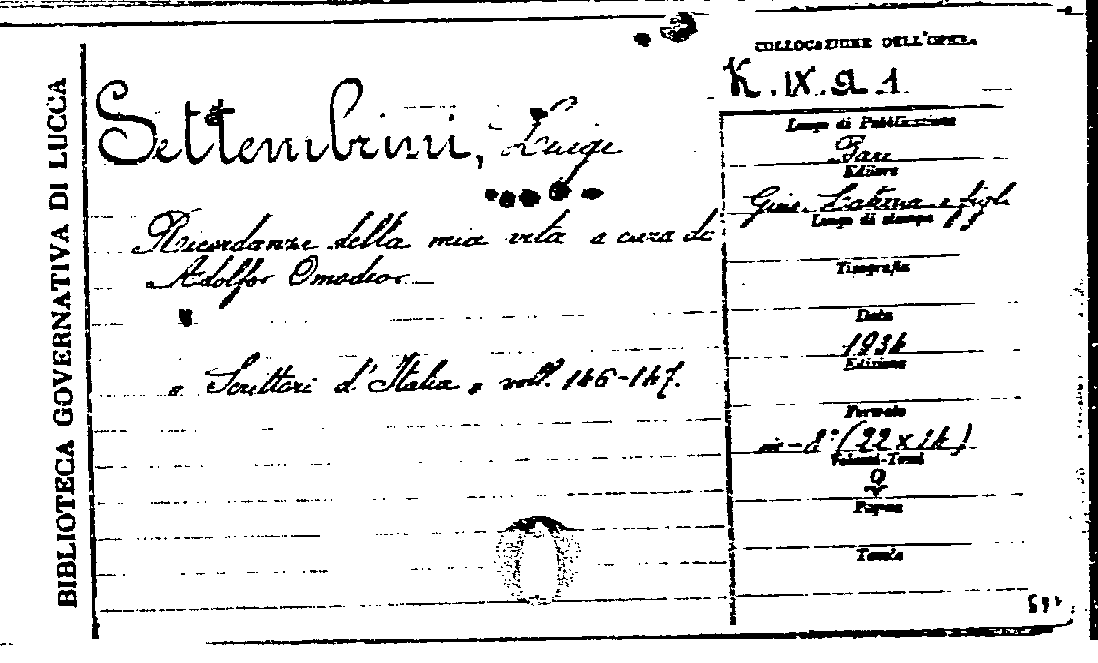 BIBLIOTECA GOVERNATIVA DI LUCCA
Settembrini, Luigi
Ricordanze della mia vita a cura di
Adolfo Omodeo
« Scrittori d'Italia » voll. 146-147.
COLLOCAZIONE DELL'OPERA
K. IX. 9. 1
Luogo di Pubblicazione
Bari
Editore
Gius. Laterza e figli
Luogo di stampa
Tipografia
Data
1934
Edizione
Formato
in-8° (22 x 14)
Volumi-Tomi
2
Pagine
Tavole